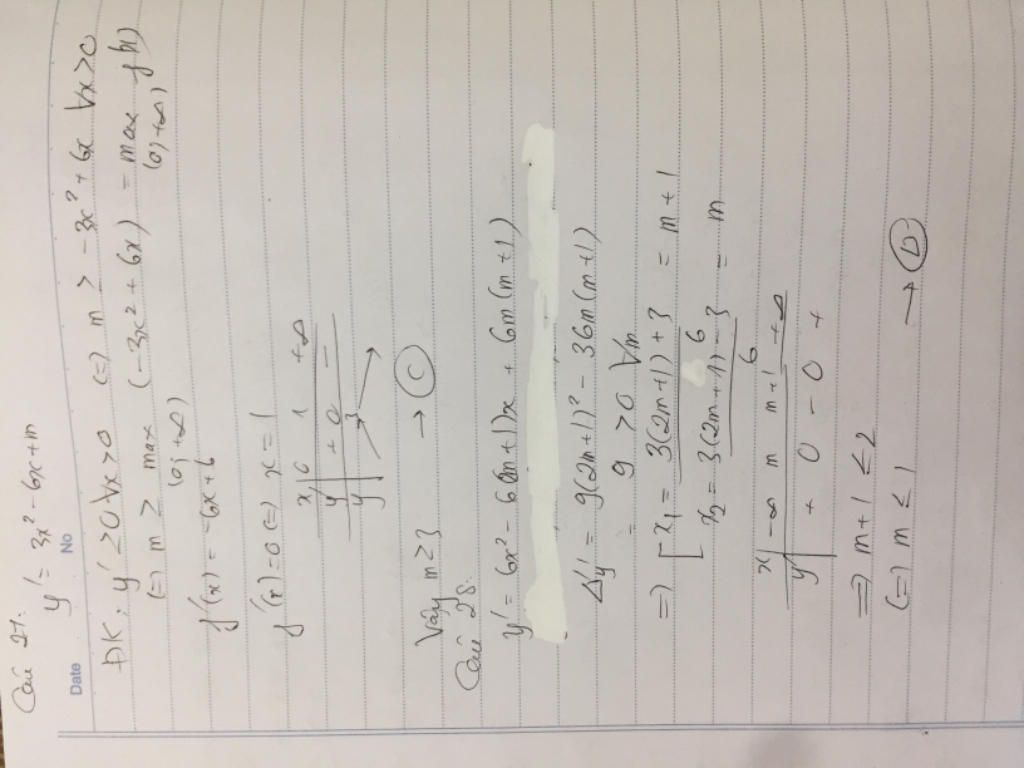 Câu 27.
y' = 3x² - 6x + m
Date No
ĐK: y' ≥ 0 ∀x > 0 (=) m ≥ -3x² + 6x ∀x > 0
(=) m ≥ max (-3x² + 6x) = max f(x)
(0; +∞) (0; +∞)
f'(x) = -6x + 6
f'(x) = 0 (=) x = 1
x 0 1 +∞
y' + 0 -
y 3
Vậy m ≥ 3 → (C)
Câu 28.
y' = 6x² - 6(2m+1)x + 6m(m+1)
Δ'y' = 9(2m+1)² - 36m(m+1)
= 9 > 0 ∀m
=> [ x₁ = 3(2m+1) + 3 / 6 = m + 1
x₂ = 3(2m+1) - 3 / 6 = m
x -∞ m m+1 +∞
y' + 0 - 0 +
=> m + 1 ≤ 2
(=) m ≤ 1 → (D)